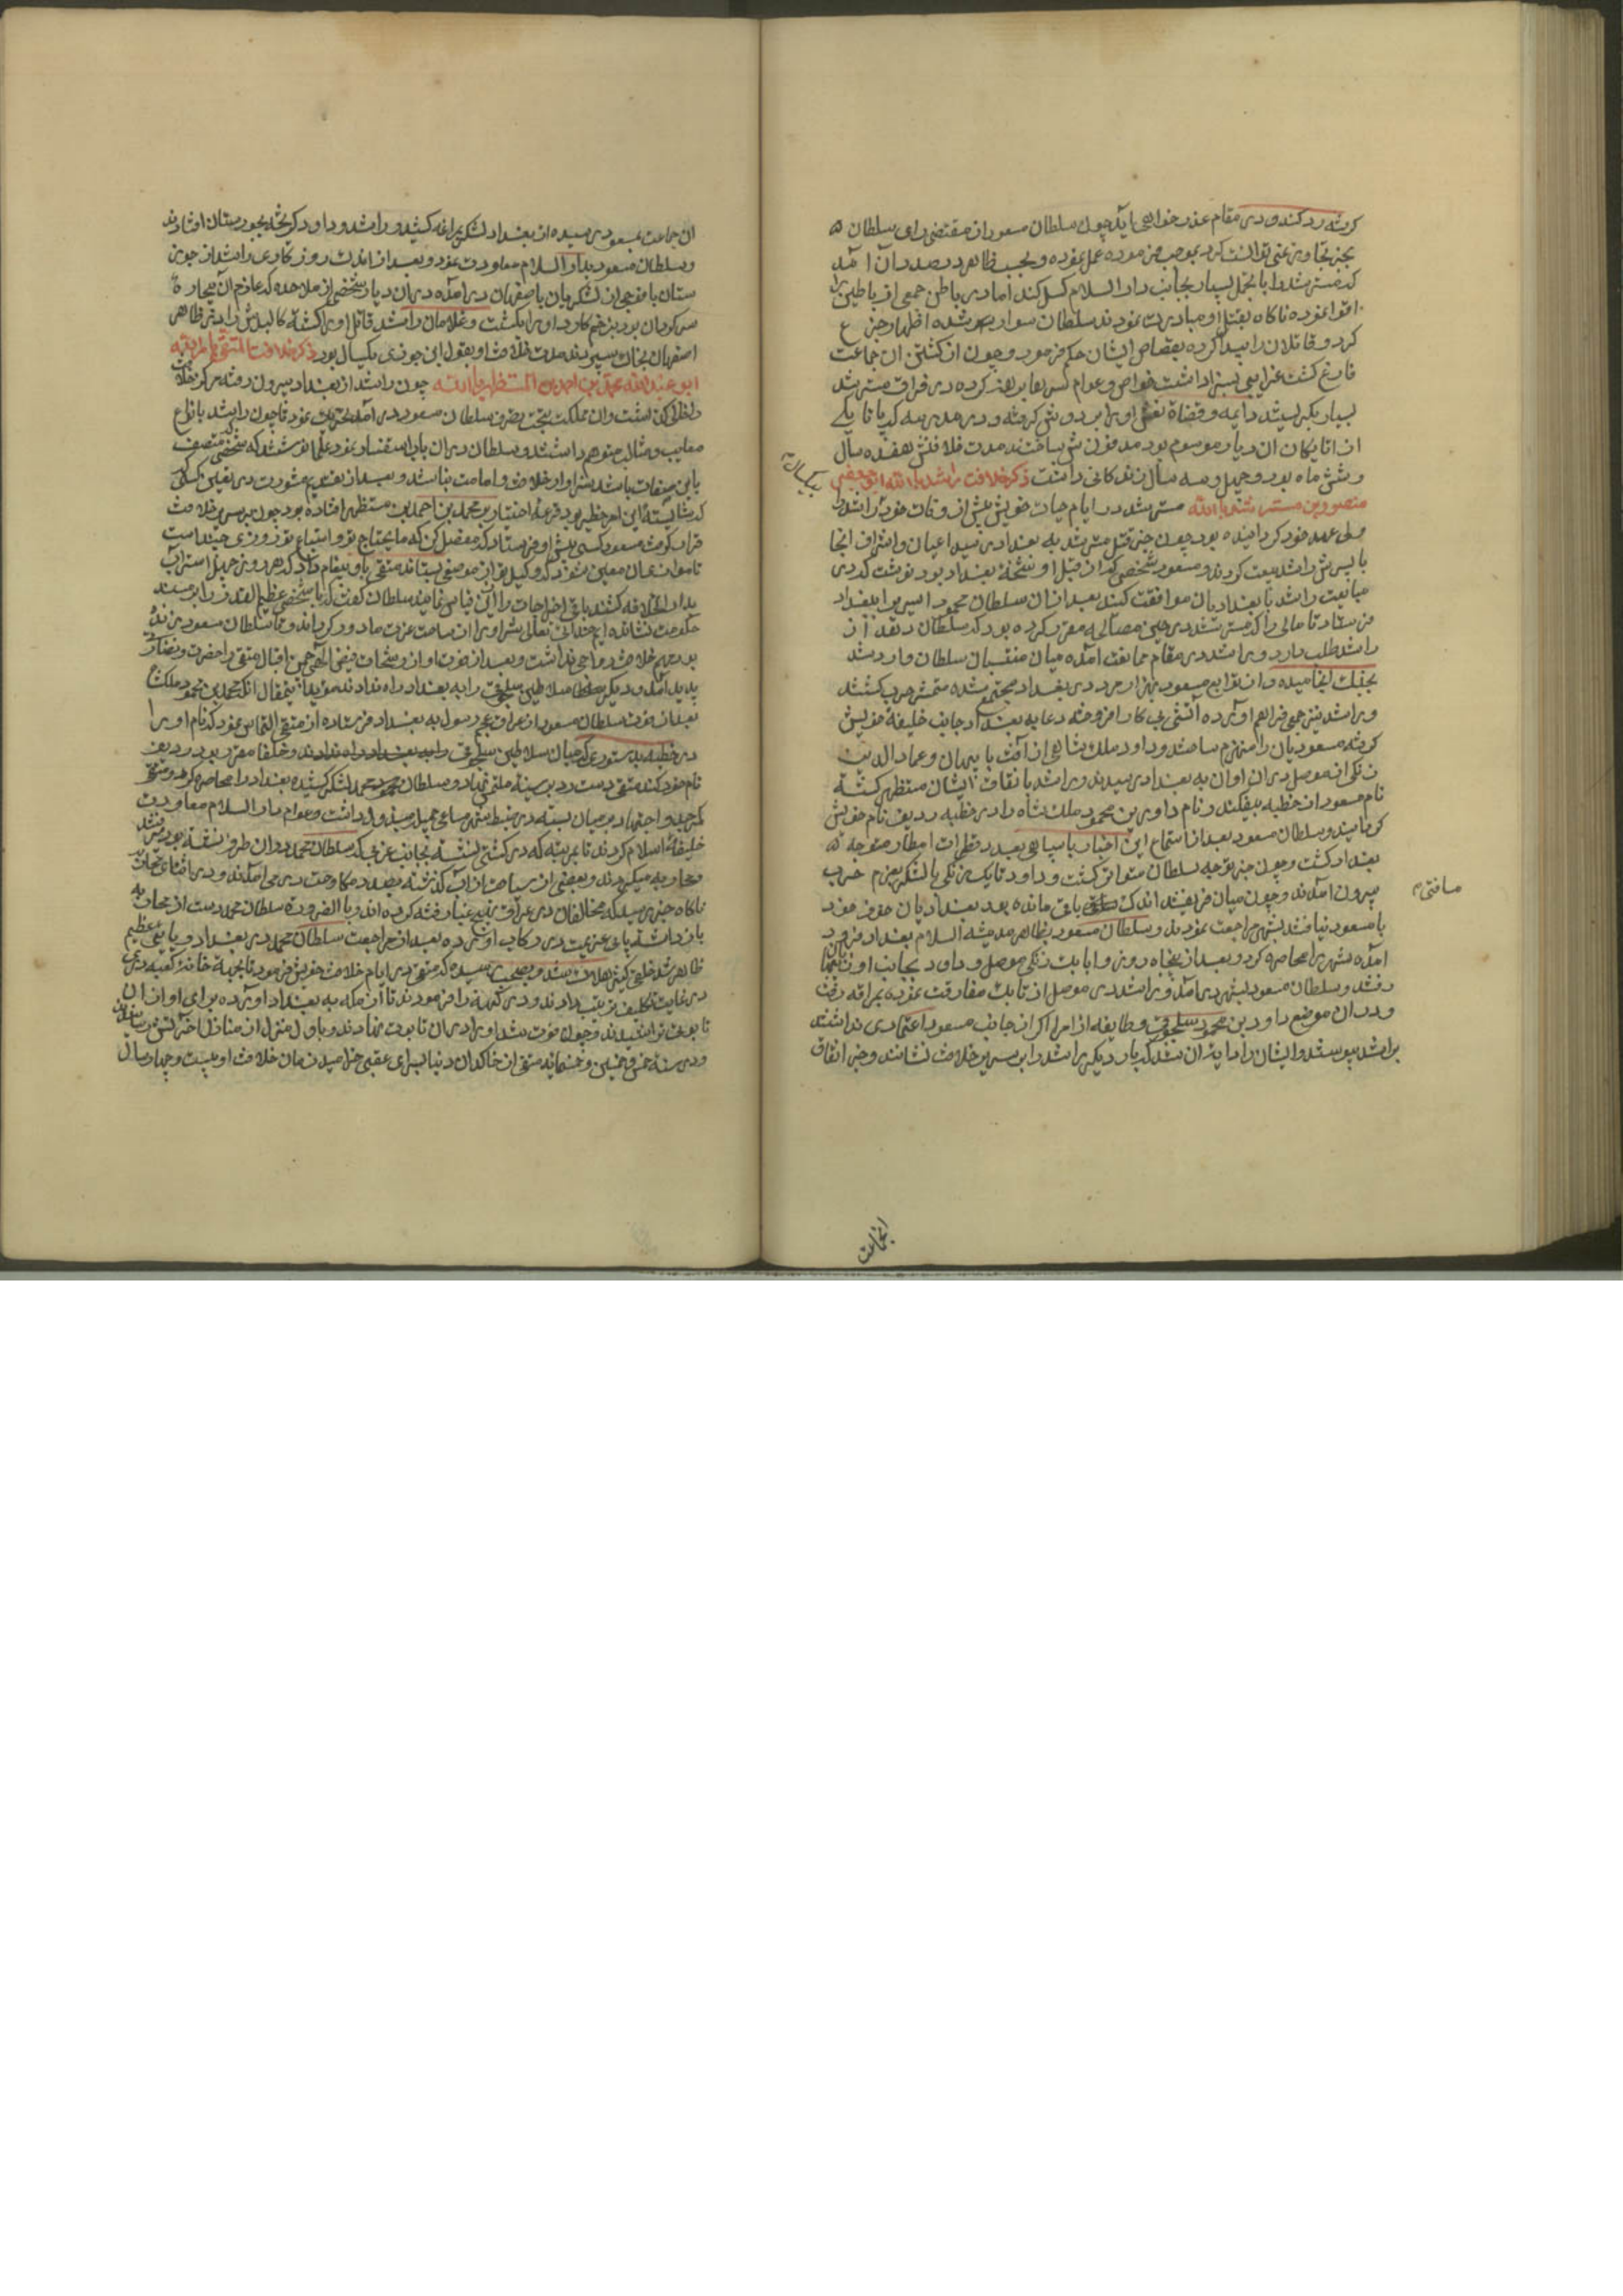 کرفته رد کند و در مقام عذر خواهی آید چون سلطان مسعود از مقتضی رای سلطان
سنجر تجاوز نمی توانست کرد بموجب فرموده عمل نموده و بحسب ظاهر در صدد آن آمد
که مسترشد را با تجمل بسیار بجانب دار السلام کسل کند اما در باطن جمعی از باطنیه را
اغوا نموده ناکاه بقتل او مبادرت نمودند سلطان سوار شده اظهار جزع
کرد و قاتلان را پیدا کرده بقصاص ایشان حکم فرمود و چون از کشتن ان جماعت
فارغ کشت عزایی بسزا داشت خواص و عوام سرها برهنه کرده در فراق مسترشد
بسیار بکریستند و ایمه و قضاة نعش او را بر دوش کرفته و در مدرسه که بانا یکی
از اتابکان ان دیار موسوم بود مدفون ساختند مدت خلافتش هفده سال
و شش ماه بود و چهل و سه سال زندکانی داشت ذکر خلافت راشد بالله ابو جعفر
منصور بن مسترشد بالله مسترشد در ایام حیات خویش پیش از وفات خود راشد را
ولی عهد خود کردانیده بود چون خبر قتل مسترشد به بغداد رسید اعیان و اشراف انجا
با پسرش راشد بیعت کردند و مسعود شخصی که از قبل او شحنه بغداد بود نوشت که در
مبایعت راشد با بغدادیان موافقت کند بعد از ان سلطان محمود امیری را ببغداد
فرستاد تا مالی را که مسترشد در حین مصالحه مقرر کرده بود که سلطان دهد از
راشد طلب دارد و راشد در مقام ممانعت آمده میان منتسبان سلطان و راشد
بجنک انجامیده و از توابع مسعود هزار مرد در بغداد مجتمع شده متمش حرب کشتند
و راشد نیز جمعی فراهم اورده آتش پیکار افروخته رعایاء بغداد جانب خلیفه خویش
کرفته مسعودیان را منهزم ساختند و داود ملک شاهی از آذربایجان و عماد الدین
زنکی از موصل در ان اوان به بغداد رسیدند و راشد باتفاق ایشان مستظهر کشته
نام مسعود از خطبه بیفکند و نام داود بن محمود ملک شاه را در خطبه ردیف نام خویش
کردانید و سلطان مسعود بعد از استماع این اخبار با سپاهی بعدد قطرات امطار متوجه
بغداد کشت و چون خبر توجه سلطان متواتر کشت و داود و اتابک زنکی با لشکر بعزم حرب
بیرون آمدند و چون میان فریقین اندک باقی مانده بعد بغدادیان
با مسعود نیافتند بشهر مراجعت نمودند و سلطان مسعود بظاهر مدینة السلام بغداد فرود
آمده شهر را محاصره کرد و بعد از پنجاه روز و اتابک زنکی موصل و داود بجانب
رفتند و سلطان مسعود بشهر در آمد و راشد در موصل از اتابک مفارقت نموده بمراغه رفت
و در ان موضع داود بن محمود سلجوقی و طایفه از امرا که از جانب مسعود اعتمادی نداشتند
براشد پیوستند و ایشان را داعیه ان شد که بار دیکر راشد را بر سریر خلافت نشانند و خبر اتفاق
مسافتی
یکسال
انجماعت
ان جماعت بمسعود رسیده از بغداد لشکر بمراغه کشید و راشد و داود کریخته بخوزستان افتادند
و سلطان مسعود بدار السلام معاودت نمود و بعد از اندک روزکاری راشد از خوزستان
با فوجی از لشکریان باصفهان در آمده در ان دیار شخصی از ملاحده که عازم
بزخم کارد او را بکشت و غلامان راشد قاتل او را کشته کالبدش را در ظاهر
اصفهان بخاک سپردند مدت خلافت او بقول ابن جوزی یکسال بود ذکر خلافت المقتفی لامر الله
ابو عبد الله محمد بن احمد المستظهر بالله چون راشد از بغداد بیرون رفت مرکز خلافت
خالی کشت و ان مملکت بتحت تصرف سلطان مسعود در آمد تحریک نمود تا چون راشد بانواع
معایب و مثالب متوهم داشتند و سلطان در ان باب استفسار نمود علما نوشتند که شخصی متصف
باین صفات باشد سزاوار خلافت و امامت نباشد و بعد از تقدیم مشورت در تعیین کسی
که شایسته این امر خطیر بود قرعه اختیار بر محمد بن احمد بن مستظهر افتاده بود چون بر سریر خلافت
قرار کرفت مسعود کسی پیش او فرستاد که مفصل کن که ما یحتاج تو و اتباع تو روزی چند است
تا موازی ان معین شود که وکیل تو از موضعی بستاند مقتفی باو پیغام داد که هر روز چهل استر آب
بدار الخلافه کشند باقی اخراجات را از ان قیاس نمایند سلطان کفت که ما شخصی عظیم القدر را بر مسند
حکومت نشانده ایم خدای تعالی شر او را از ساحت عزت ما دور کرداند و تا سلطان مسعود زنده
بود مهم خلافت رواجی نداشت و بعد از فوت او از رشحات فیض الهی چمن اقبال مقتفی را خضرت و نضارت
پدید آمد و دیکر سلاطین سلجوقی را به بغداد راه ندادند مؤید این مقال انکه محمد بن محمود ملکشاه
بعد از فوت سلطان مسعود از عراق عجم رسول به بغداد فرستاده از مقتفی التماس نمود که نام او را
در خطبه بدستوری که میان سلاطین سلجوقی و خلفا مقرر بود ردیف
نام خود کند مقتفی دست رد بر سینه ملتمس نهاد و سلطان محمد لشکر کشیده بغداد را محاصره کرد و مقتفی
کمر جد و اجتهاد بر میان بسته در ضبط شهر مساعی جمیل مبذول داشت و عوام دار السلام معاودت
خلیفه اسلام کردند تا بمرتبه که در کشتی نشسته بجانب غربی که سلطان محمد در ان طرف نشسته بود می شد
و محاربه میکردند و بعضی از سباحت از اب کذشته بصدد مکاوحت در می آمدند و در اثنای محاربه
ناکاه خبر رسید که مخالفان در عراق عجم غبار فتنه کرده اند و بالضرورة سلطان محمد دست از محاربه
باز داشت پای عزیمت در رکاب اورده بعد از مراجعت سلطان محمد در بغداد وبایی عظیم
ظاهر شد خلقی کثیر هلاک شدند و بصحت رسیده که مقتفی در ایام خلافت خویش فرمود تا بجهة خانه کعبه دری
در غایت تکلیف ترتیب دادند و در کهنه را فرمودند تا از مکه به بغداد اورده برای او از ان
تابوتی تراشیدند و چون فوت شد او را در ان تابوت نهادند و باول منزل از منازل آخرتش رسانیدند
و در سنه خمس و خمسین و خمسمایه مقتفی از خاکدان دنیا بسرای عقبی خرامید زمان خلافت او بیست و چهار سال